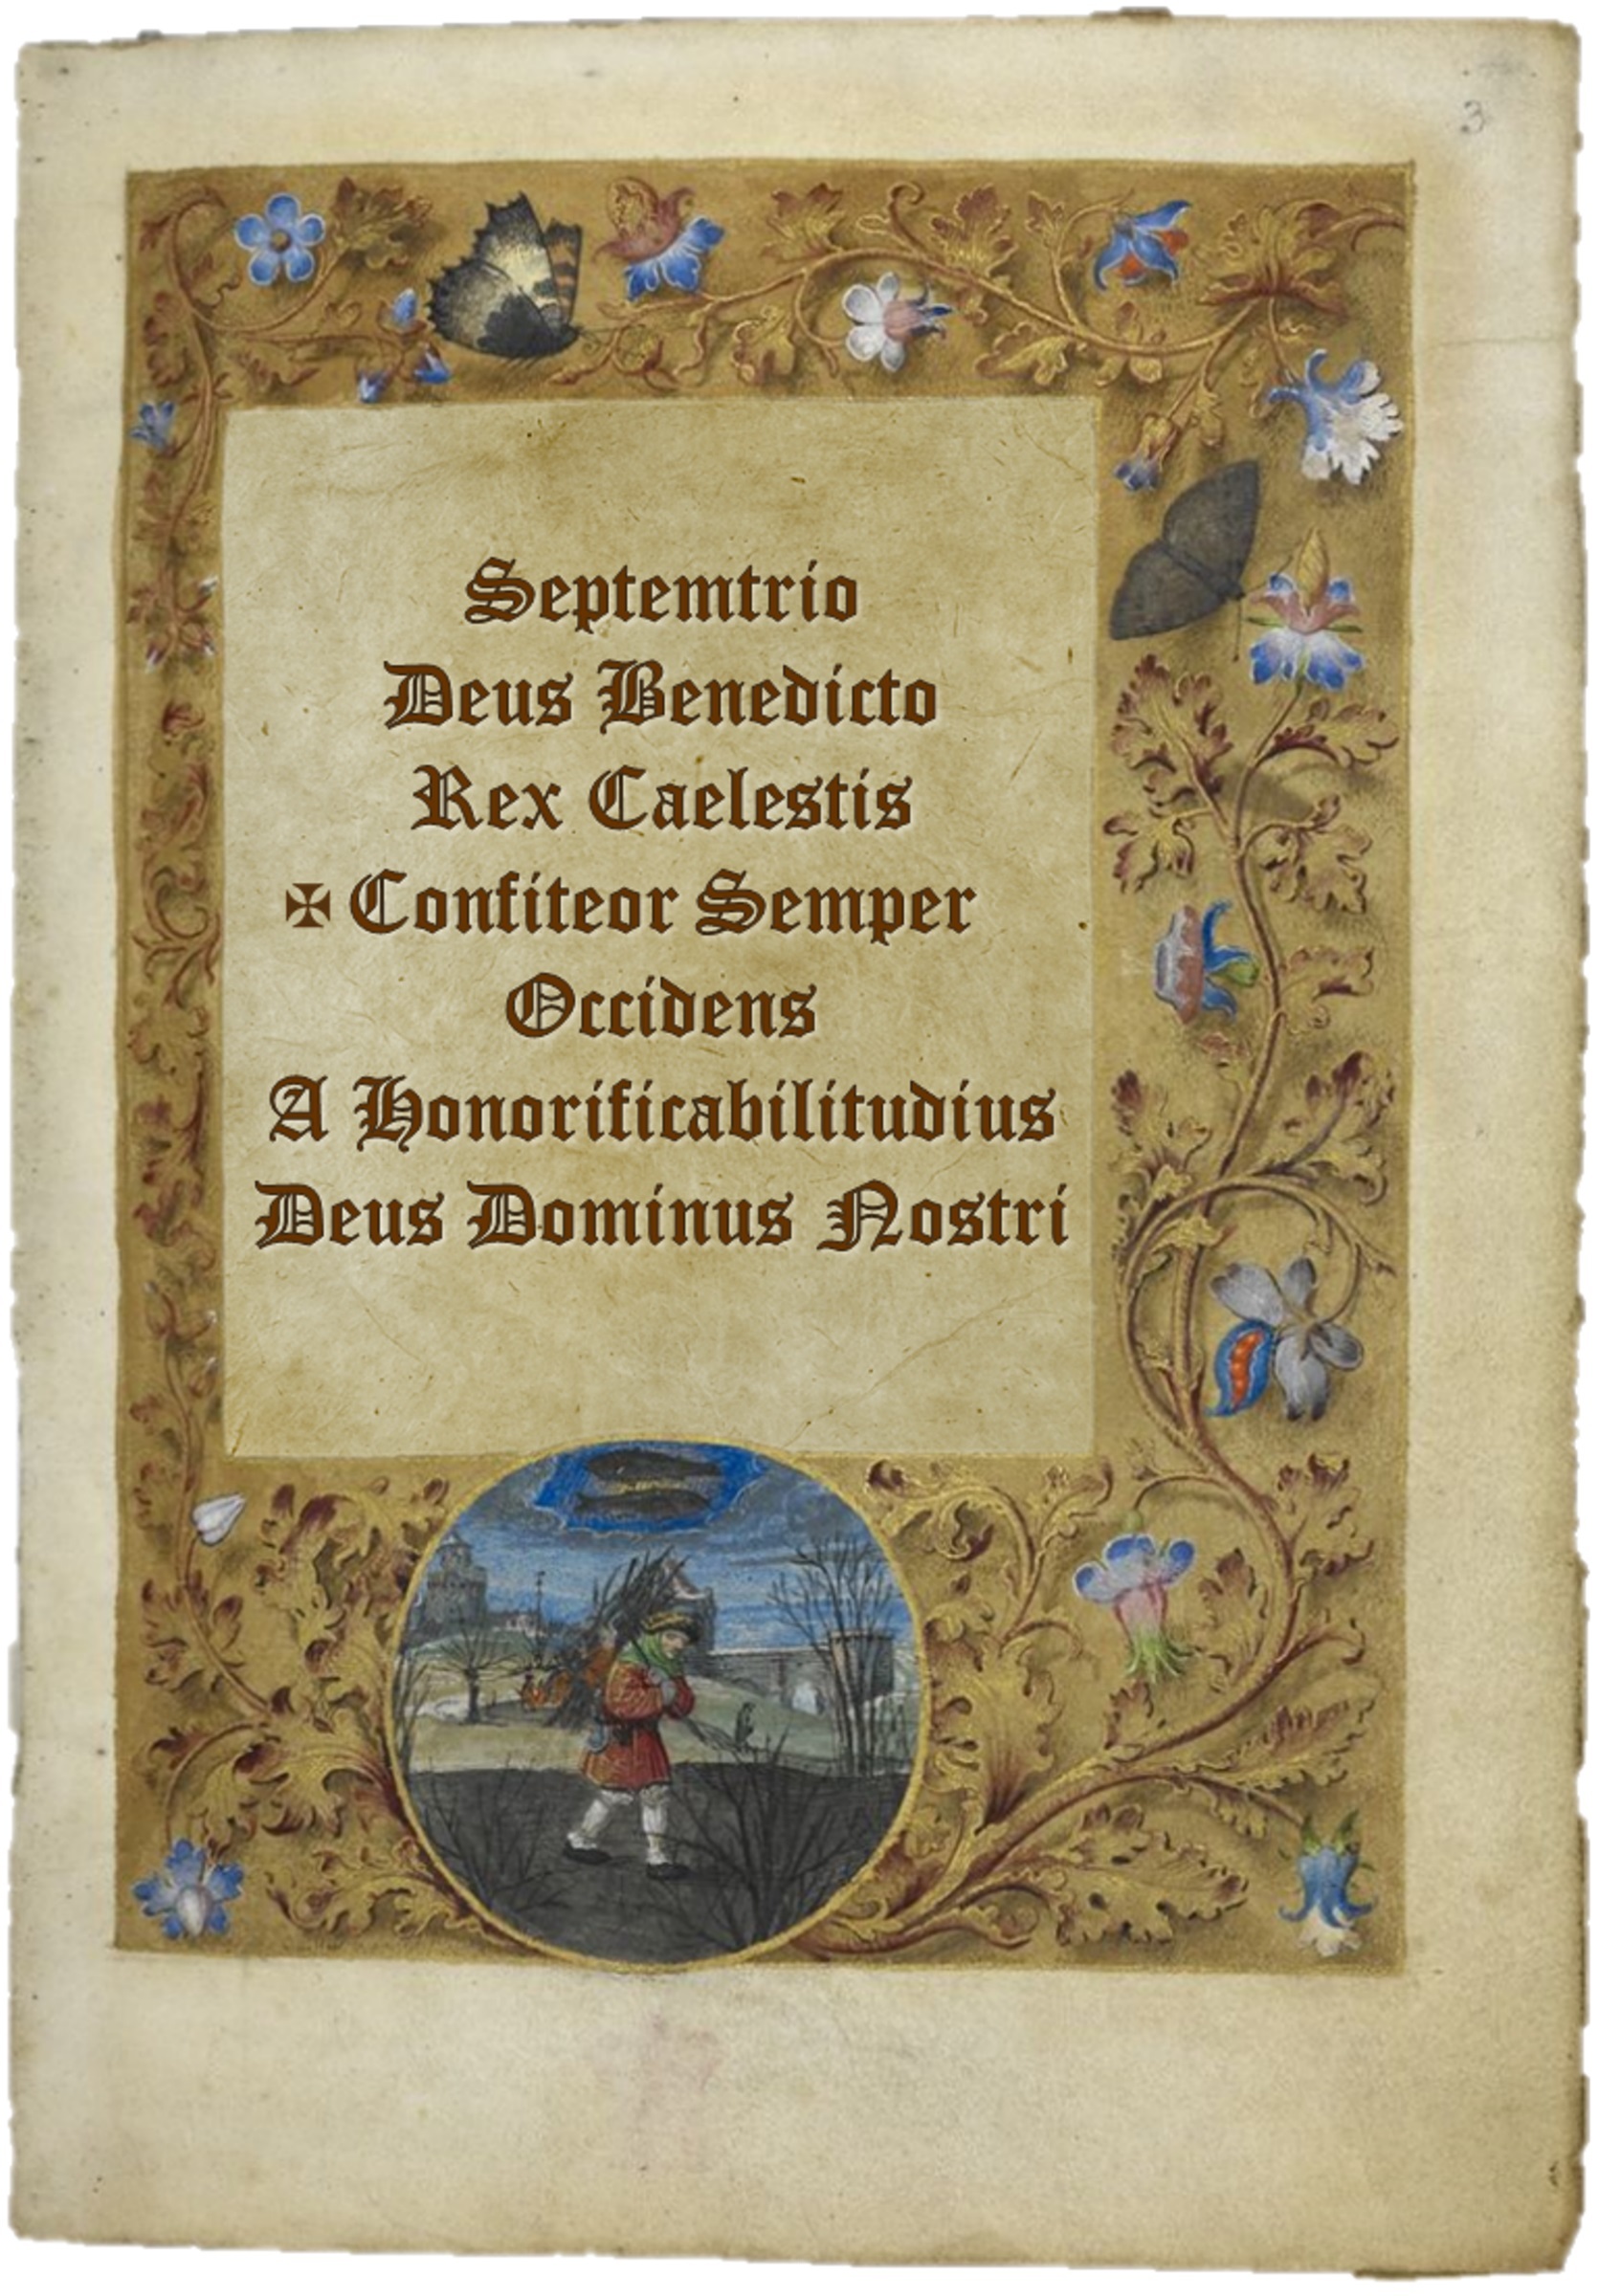 3
Septemtrio
Deus Benedicto
Rex Caelestis
✠ Confiteor Semper
Occidens
A Honorificabilitudius
Deus Dominus Nostri